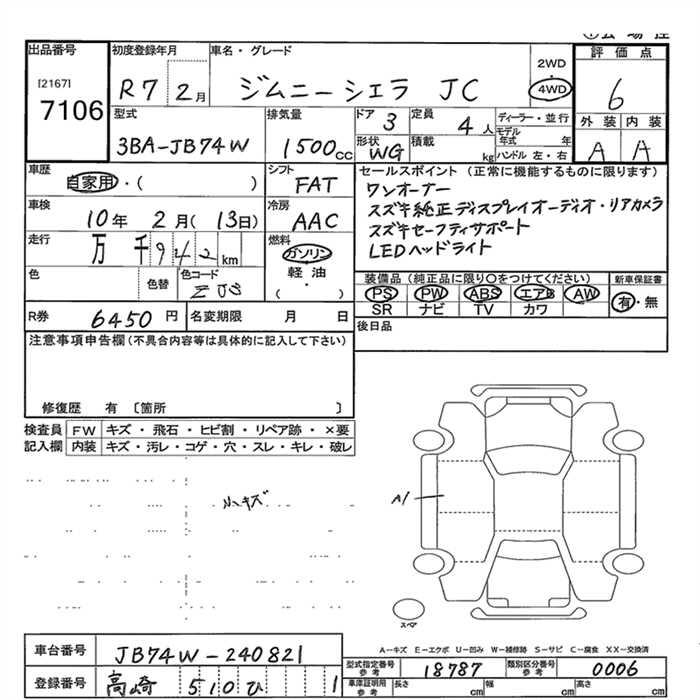 出品番号
[2167]
7106
初度登録年月
R7 2月
車名・グレード
ジムニーシエラ JC
2WD
4WD
評価点
6
型式
3BA-JB74W
排気量
1500cc
ドア 3
定員 4人
形状 WG
積載 kg
ディーラー・並行
モデル年式 年
ハンドル 左・右
外装 内装
A A
車歴
自家用・( )
シフト
FAT
車検
10年 2月(13日)
冷房
AAC
走行
万 千942km
燃料
ガソリン
軽・油
( )
色
色替
色コード
ZJS
セールスポイント (正常に機能するものに限ります)
ワンオーナー
スズキ純正ディスプレイオーディオ・リアカメラ
スズキセーフティサポート
LEDヘッドライト
装備品 (純正品に限り○をつけてください)
PS PW ABS エアB AW
SR ナビ TV カワ
新車保証書
有・無
R券 6450円
名変期限 月 日
後日品
注意事項申告欄(不具合内容等は具体的に記入して下さい)
修復歴 有 〔箇所 〕
検査員記入欄
FW キズ・飛石・ヒビ割・リペア跡・×要
内装 キズ・汚レ・コゲ・穴・スレ・キレ・破レ
小キズ
A1
スペア
A−キズ E−エクボ U−凹み W−補修跡 S−サビ C−腐食 XX−交換済
車台番号 JB74W-240821
登録番号 高崎 510ひ 1
型式指定番号 参考 18787
類別区分番号 参考 0006
車庫証明用 参考 長さ cm 幅 cm 高さ cm